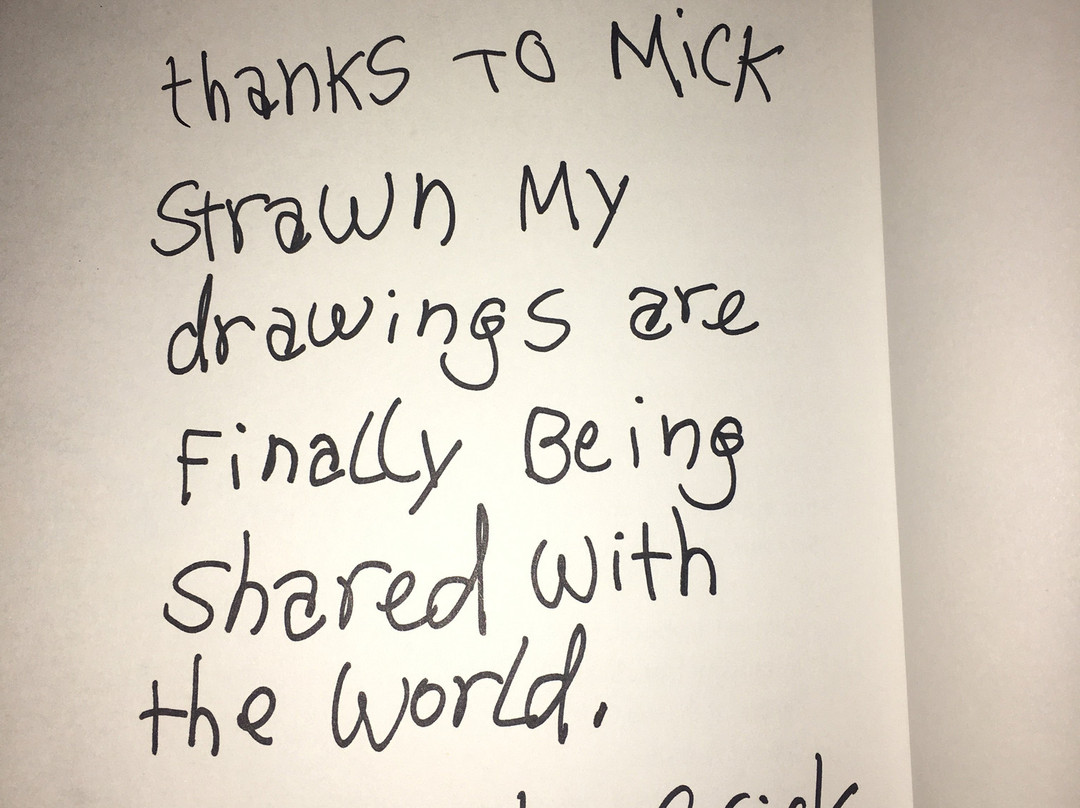 thanks TO MiCK
Strawn My
drawings are
Finally Being
shared with
the World.